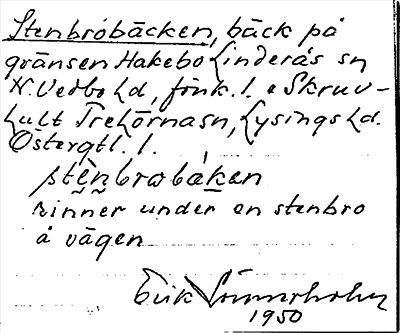 Stenbróbäcken, bäck på
gränsen Hakebo Linderås sn
N. Vedbo hd, Jönk. l. o Skruv-
hult Trehörna sn, Lysings hd.
Östergtl. l.
stènbrobáken
rinner under en stenbro
å vägen
Erik
1950